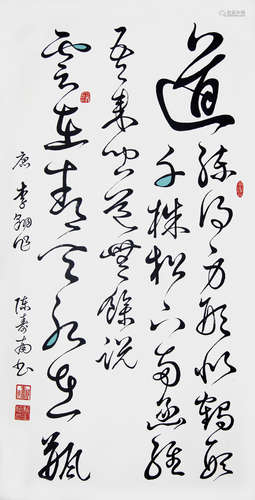 道
练得身形似鹤形
千株松下两函经
吾来问道無餘说
雲在青天水在瓶
唐 李翱作
陈寿南书